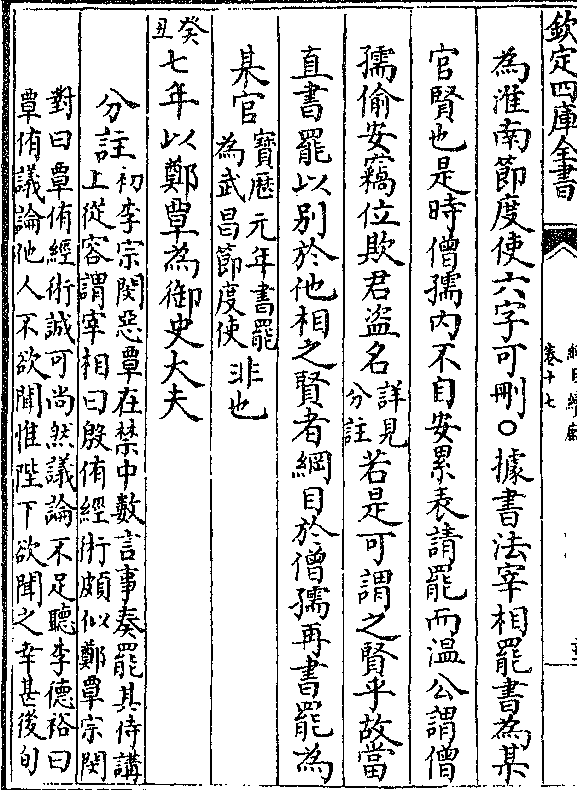 欽定四庫全書
卷十七
為淮南節度使六字可刪○據書法宰相罷書為某
官賢也是時僧孺内不自安累表請罷而温公謂僧
孺偷安竊位欺君盗名詳見分註若是可謂之賢乎故當
直書罷以别於他相之賢者綱目於僧孺再書罷為
某官寶厯元年書罷為武昌節度使非也
癸丑七年以鄭覃為御史大夫
分註初李宗閔惡覃在禁中數言事奏罷其侍講
上從容謂宰相曰殷侑經術頗似鄭覃宗閔
對曰覃侑經術誠可尚然議論不足聽李德裕曰
覃侑議論他人不欲聞惟陛下欲聞之幸甚後旬